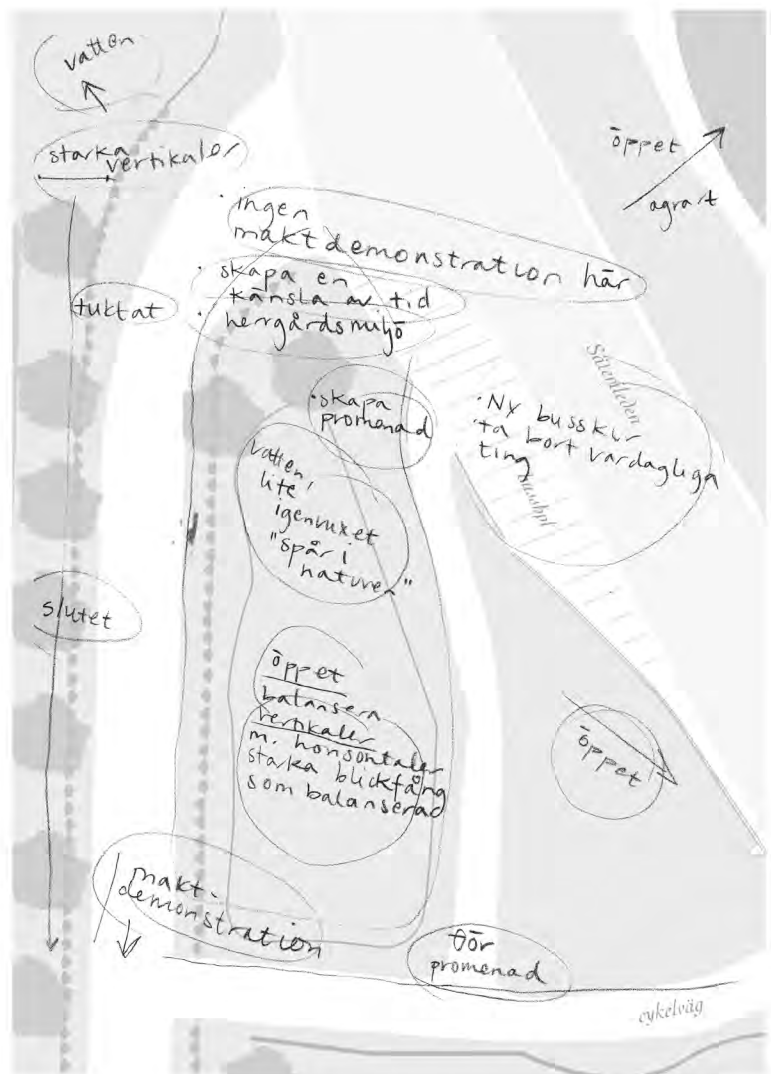 vatten
starka
vertikaler
öppet
agrart
· ingen
maktdemonstration här
· skapa en
känsla av tid
· herrgårdsmiljö
tuktat
· skapa
promenad
Sätenleden
· Ny busskur
· ta bort vardagliga
ting
busshpl
vatten,
lite
igenvuxet
"spår i
naturen"
slutet
öppet
balansera
vertikaler
m. horisontaler
starka blickfång
som balanserad
öppet
makt-
demonstration
för
promenad
cykelväg